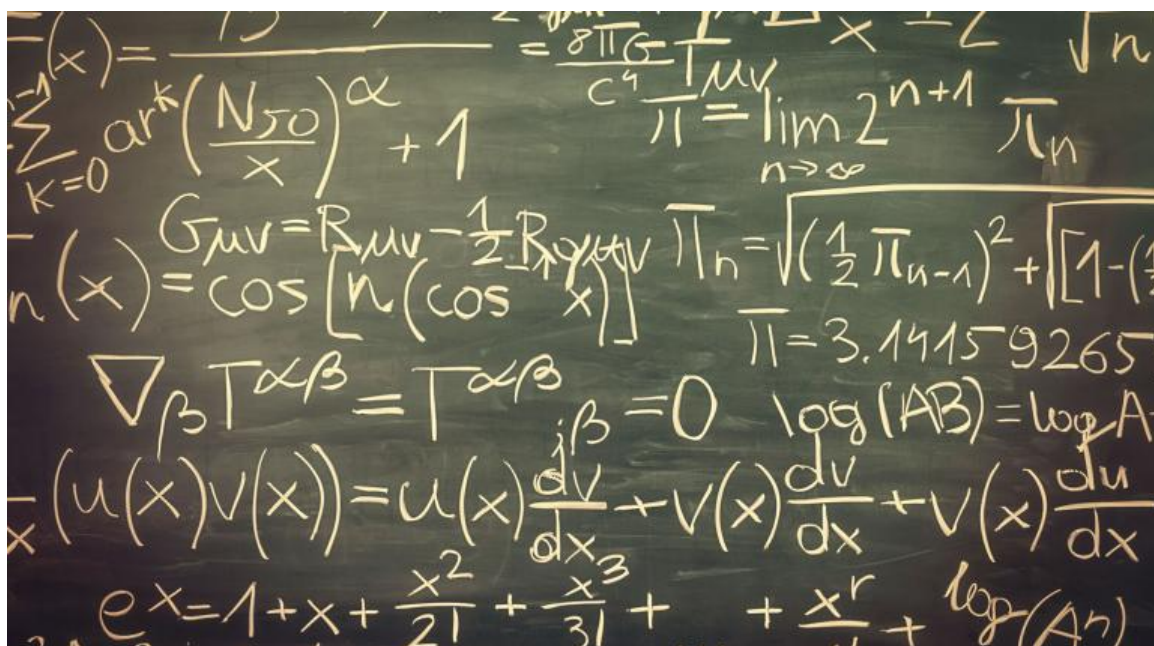 (x) = = 8πG/c⁴ Tμν x √n
n-1 ∑ k=0 arᵏ (N50/x)^α + 1 π = lim n→∞ 2ⁿ⁺¹ πn
Gμν = Rμν - 1/2 R πn = √((1/2 πn-1)² + √[1-(
n(x) = cos[n(cos⁻¹ x)]
π = 3.14159265
∇β T^αβ = T^αβ ;β = 0 log(AB) = log A
x (u(x)v(x)) = u(x) dv/dx + v(x) dv/dx + v(x) du/dx
e x = 1 + x + x²/2! + x³/3! + + xʳ + log(Aⁿ)